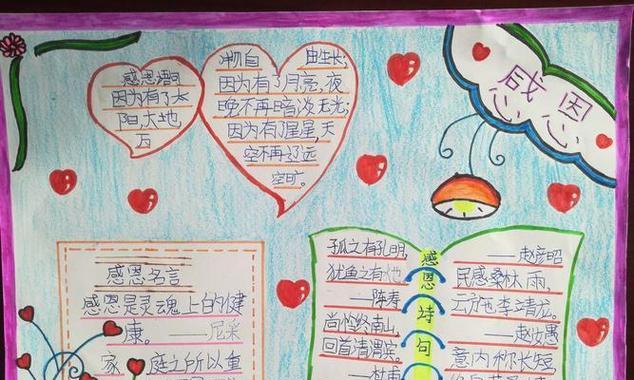 感恩
感恩
因为有了太
阳,大地
万
自 由生长;
因为有了月亮,夜
晚不再暗淡无光;
因为有了星星,天
空不再辽远
空旷。
感恩名言
感恩是灵魂上的健
康。——尼采
家 庭之所以重
感恩诗句
孤之有孔明,
犹鱼之有
——陈寿
尚怜终南山,
回首清渭滨。
——杜甫
——赵彦昭
民感桑林雨,
云施李靖龙。
——赵汝愚
意内称长短